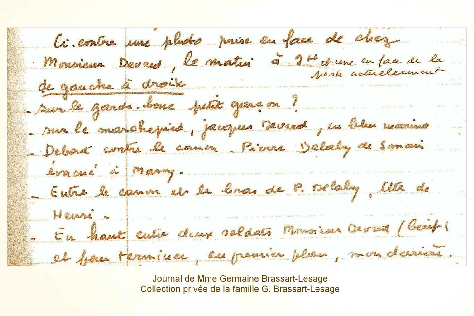 Ci-contre une photo prise en face de chez
Monsieur Devred, le matin à 9h et une en face de la
poste actuellement
de gauche à droite
- sur le garde-boue petit garçon ?
- sur le marchepied, Jacques Devred, en bleu marine
- Debout contre le camion Pierre Delaby de Somain
évacué à Marny.
- Entre le camion et le bras de P. Delaby, tête de
Henri.
- En haut entre deux soldats Monsieur Devred
et pour terminer, au premier plan, mon derrière.
Journal de Mme Germaine Brassart-Lesage
Collection privée de la famille G. Brassart-Lesage